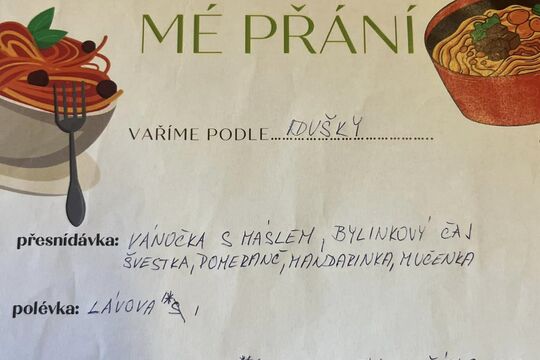 MÉ PŘÁNÍ
VAŘÍME PODLE...DUŠKY...
přesnídávka: VÁNOČKA S MÁSLEM, BYLINKOVÝ ČAJ
ŠVESTKA, POMERANČ, MANDARINKA, MUČENKA
polévka: LÁVOVA